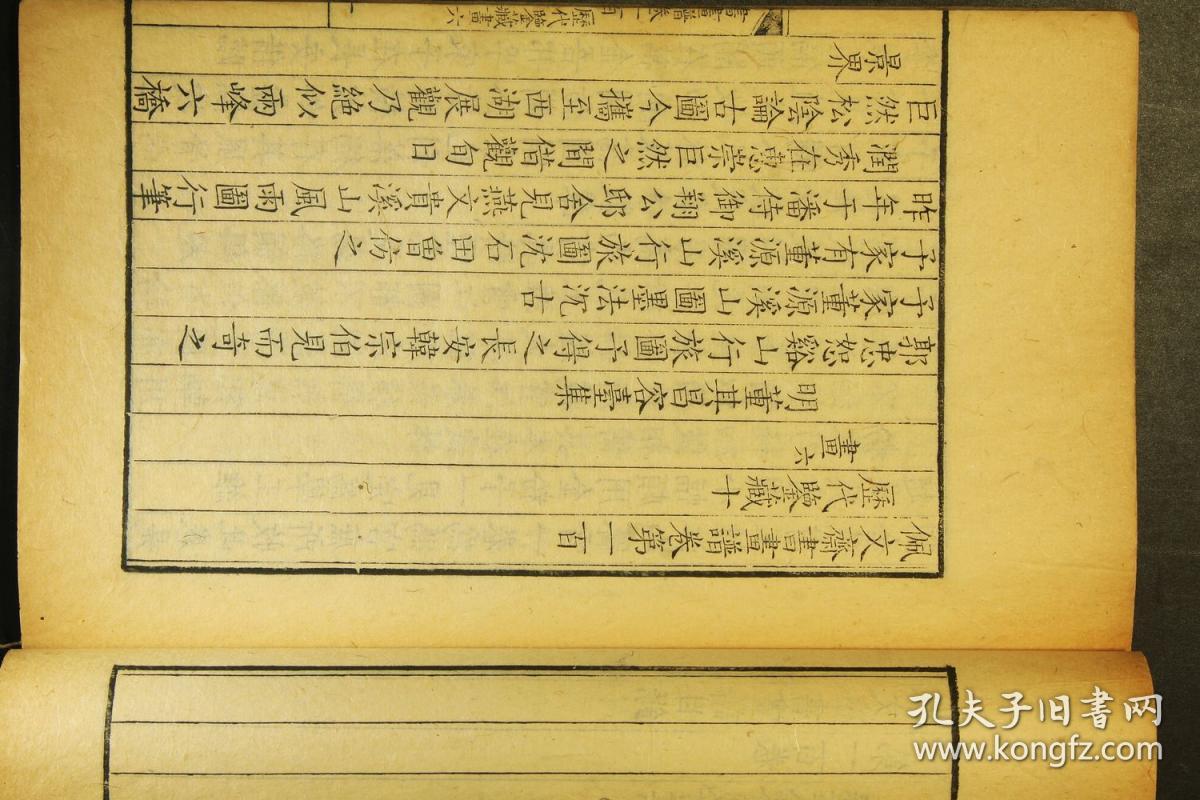 佩文齋書畫譜卷第一百
歷代鑒藏十
畫六
明董其昌容臺集
郭忠恕谿山行旅圖予得之長安韓宗伯見而奇之
予家董源溪山圖墨法沈古
予家有董源溪山行旅圖沈石田曾仿之
昨年于潘侍御翔公邸舍見燕文貴溪山風雨圖行筆
潤秀在惠崇巨然之間借觀旬日
巨然松陰論古圖今攜至西湖展觀乃絕似兩峰六橋
景界
書畫譜卷一百
歷代鑒藏畫六
孔夫子旧書网
www.kongfz.com